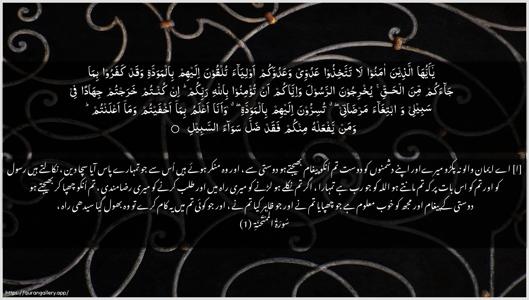 يٰۤاَيُّهَا الَّذِيْنَ اٰمَنُوْا لَا تَتَّخِذُوْا عَدُوِّىْ وَعَدُوَّكُمْ اَوْلِيَآءَ تُلْقُوْنَ اِلَيْهِمْ بِالْمَوَدَّةِ وَقَدْ كَفَرُوْا بِمَا
جَآءَكُمْ مِّنَ الْحَـقِّ ۚ يُخْرِجُوْنَ الرَّسُوْلَ وَاِيَّاكُمْ اَنْ تُؤْمِنُوْا بِاللّٰهِ رَبِّكُمْ ؕ اِنْ كُنْـتُمْ خَرَجْتُمْ جِهَادًا فِىْ
سَبِيْلِىْ وَ ابْتِغَآءَ مَرْضَاتِىْ ۖ تُسِرُّوْنَ اِلَيْهِمْ بِالْمَوَدَّةِ ۖ وَاَنَا اَعْلَمُ بِمَاۤ اَخْفَيْتُمْ وَمَاۤ اَعْلَنْتُمْ ؕ
وَمَنْ يَّفْعَلْهُ مِنْكُمْ فَقَدْ ضَلَّ سَوَآءَ السَّبِيْلِ ۝
[۱] اے ایمان والو نہ پکڑو میرے اور اپنے دشمنوں کو دوست تم انکو پیغام بھیجتے ہو دوستی سے، اور وہ منکر ہوئے ہیں اُس سے جو تمہارے پاس آیا سچا دین، نکالتے ہیں رسول
کو اور تم کو اس بات پر کہ تم مانتے ہو اللہ کو جو رب ہے تمہارا، اگر تم نکلے ہو لڑنے کو میری راہ میں اور طلب کرنے کو میری رضامندی، تم اُنکو چھپا کر بھیجتے ہو
دوستی کے پیغام اور مجھ کو خوب معلوم ہے جو چھپایا تم نے اور جو ظاہر کیا تم نے، اور جو کوئی تم میں یہ کام کرے تو وہ بھول گیا سیدھی راہ،
سُوۡرَةُ المُمتَحنَة (۱)
https://qurangallery.app/